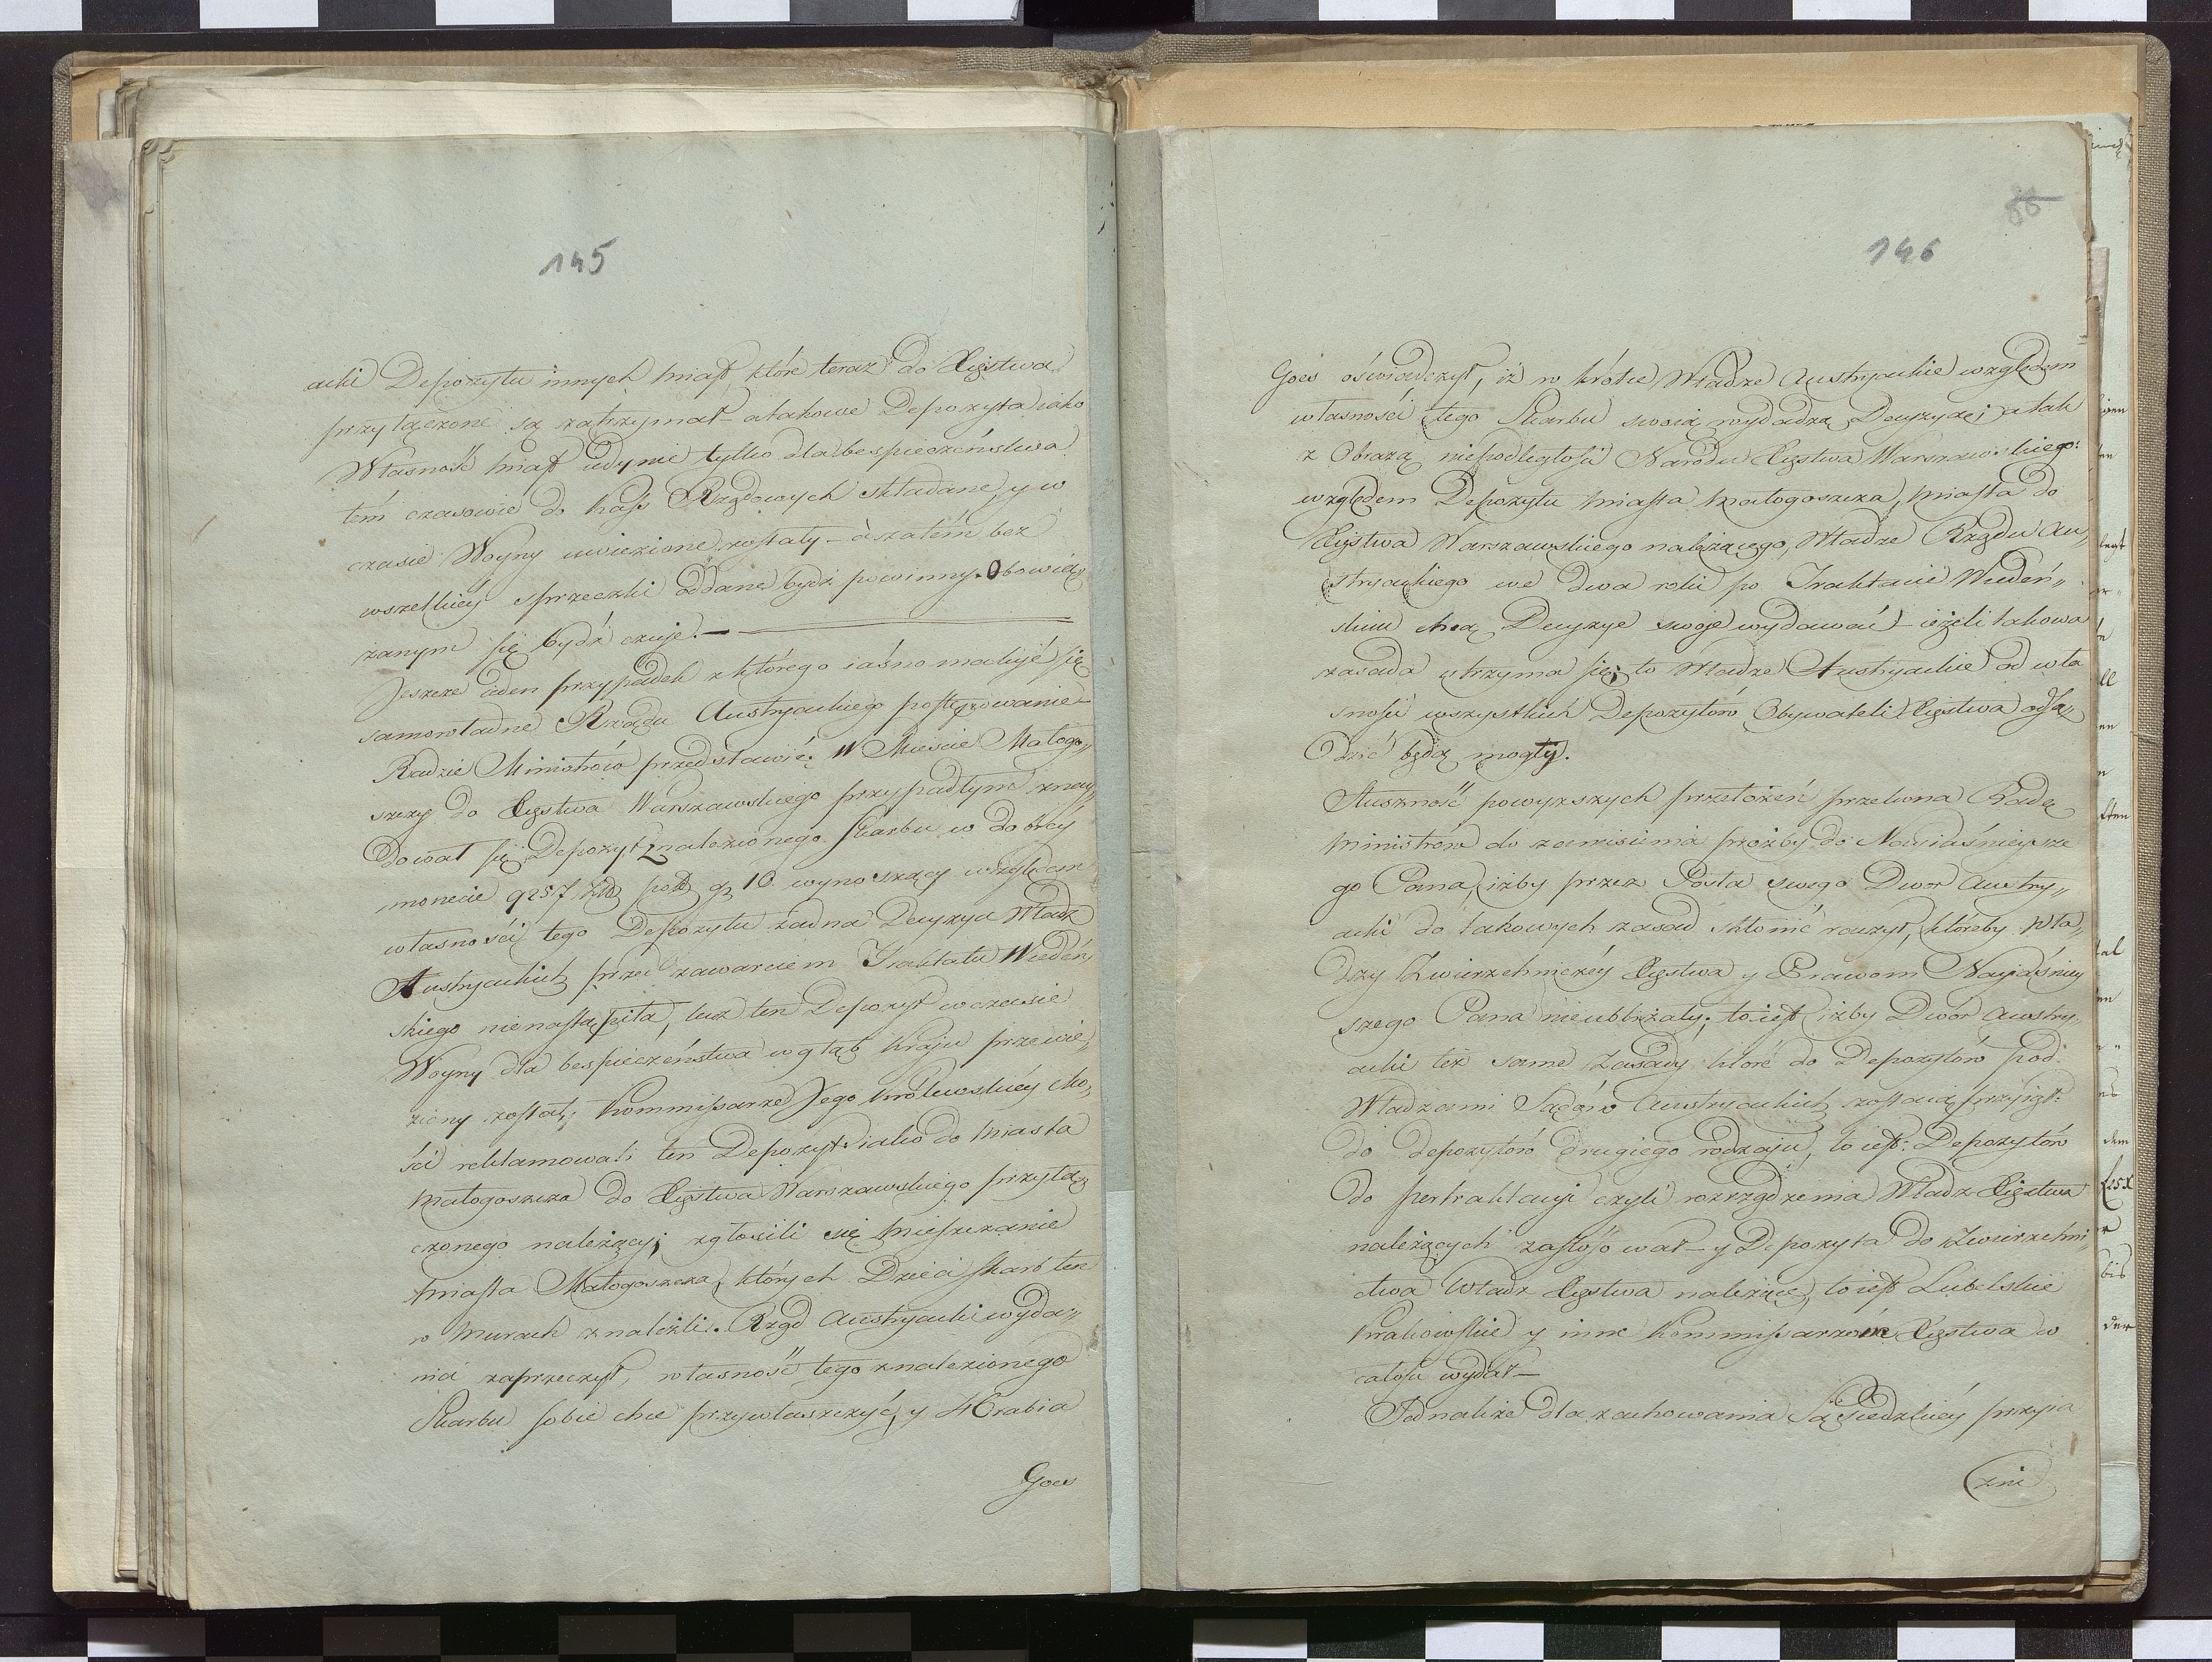 145
acki Depozytu innych miast, które teraz do Xięstwa
przyłączone są zatrzymał – a takowe Depozyta iako
Własność miast iedynie tylko dla bespieczeństwa
tém czasowie do kass Rządowych składane, y w
czasie Woyny uwiezione zostały – a zatém bez
wszelkiéy sprzeczki oddane bydź powinny. Obowią„
zanym się bydź czuje. –
Jeszcze ieden przypadek z którego iaśno maluje się
samowładne Rządu Austryackiego postępowanie
Radzie Ministrów przedstawić. W Mieście Małogo„
szczy do Xięstwa Warszawskiego przypadłym znay„
dował się Depozyt znalezionego Skarbu w dobréy
monecie 9257 Złł pol gr 10 wynoszący względem
własności tego Depozytu żadna Decyzya Władz
Austryackich przed zawarciem Traktatu Wiedeń„
skiego nienastąpiła, lecz ten Depozyt w czasie
Woyny dla bespieczeństwa w głąb kraju przewie„
ziony został, Kommissarze Jego Królewskiéy Mo„
ści reklamowali ten Depozyt iako do Miasta
Małogoszcza do Xięstwa Warszawskiego przyłą„
czonego należący; zgłosili się Mieszczanie
Miasta Małogoszcza, których Dzieci skarb ten
w Murach znaleźli. Rząd Austryacki wyda„
nia zaprzeczył, własność tego znalezionego
Skarbu sobie chce przywłaszczyć, y Hrabia
Goes
88
146
Goes oświadczył, iż w krótce Władze Austryackie względem
własności tego Skarbu swoią wydadzą Decyzyę; a tak
z Obrazą niepodległości Narodu Xięstwa Warszawskiego:
względem Depozytu Miasta Małogoszcza, Miasta do
Xięstwa Warszawskiego należącego, Władze Rządu Au„
stryackiego we dwa roki po Traktacie Wiedeń„
skim chcą Decyzye swoje wydawać – ieżeli takowa
zasada utrzyma się; to Władze Austryackie od wła
sności wszystkich Depozytów Obywateli Xięstwa odsą„
dzić będą mogły.
Słuszność powyższych przełożeń przekona Radę
Ministrów do zaniesienia prożby do Nayiaśnieysze
go Pana, iżby przez Posła swego Dwor Austry„
acki do takowych zasad skłonić raczył, któreby Wła„
dzy Zwierzchniczéy Xięstwa y Prawom Nayiaśniey
szego Pana nieubliżały; to iest iżby Dwór Austry„
acki też same Zasady które do Depozytów pod
Władzami Sądów Austryackich zostaią przyiął:
do depozytów drugiego rodzaju, to iest: Depozytów
do pertraktacyi czyli rozrządzenia Władz Xięstwa
należących zastósował – y Depozyta do Zwierzchni„
ctwa Władz Xięstwa należące, to iest Lubelskie
Krakowskie y inne Kommissarzom Xięstwa w
całości wydał –
Jednakże dla zachowania Sąsiedzkiéy przyia
zni